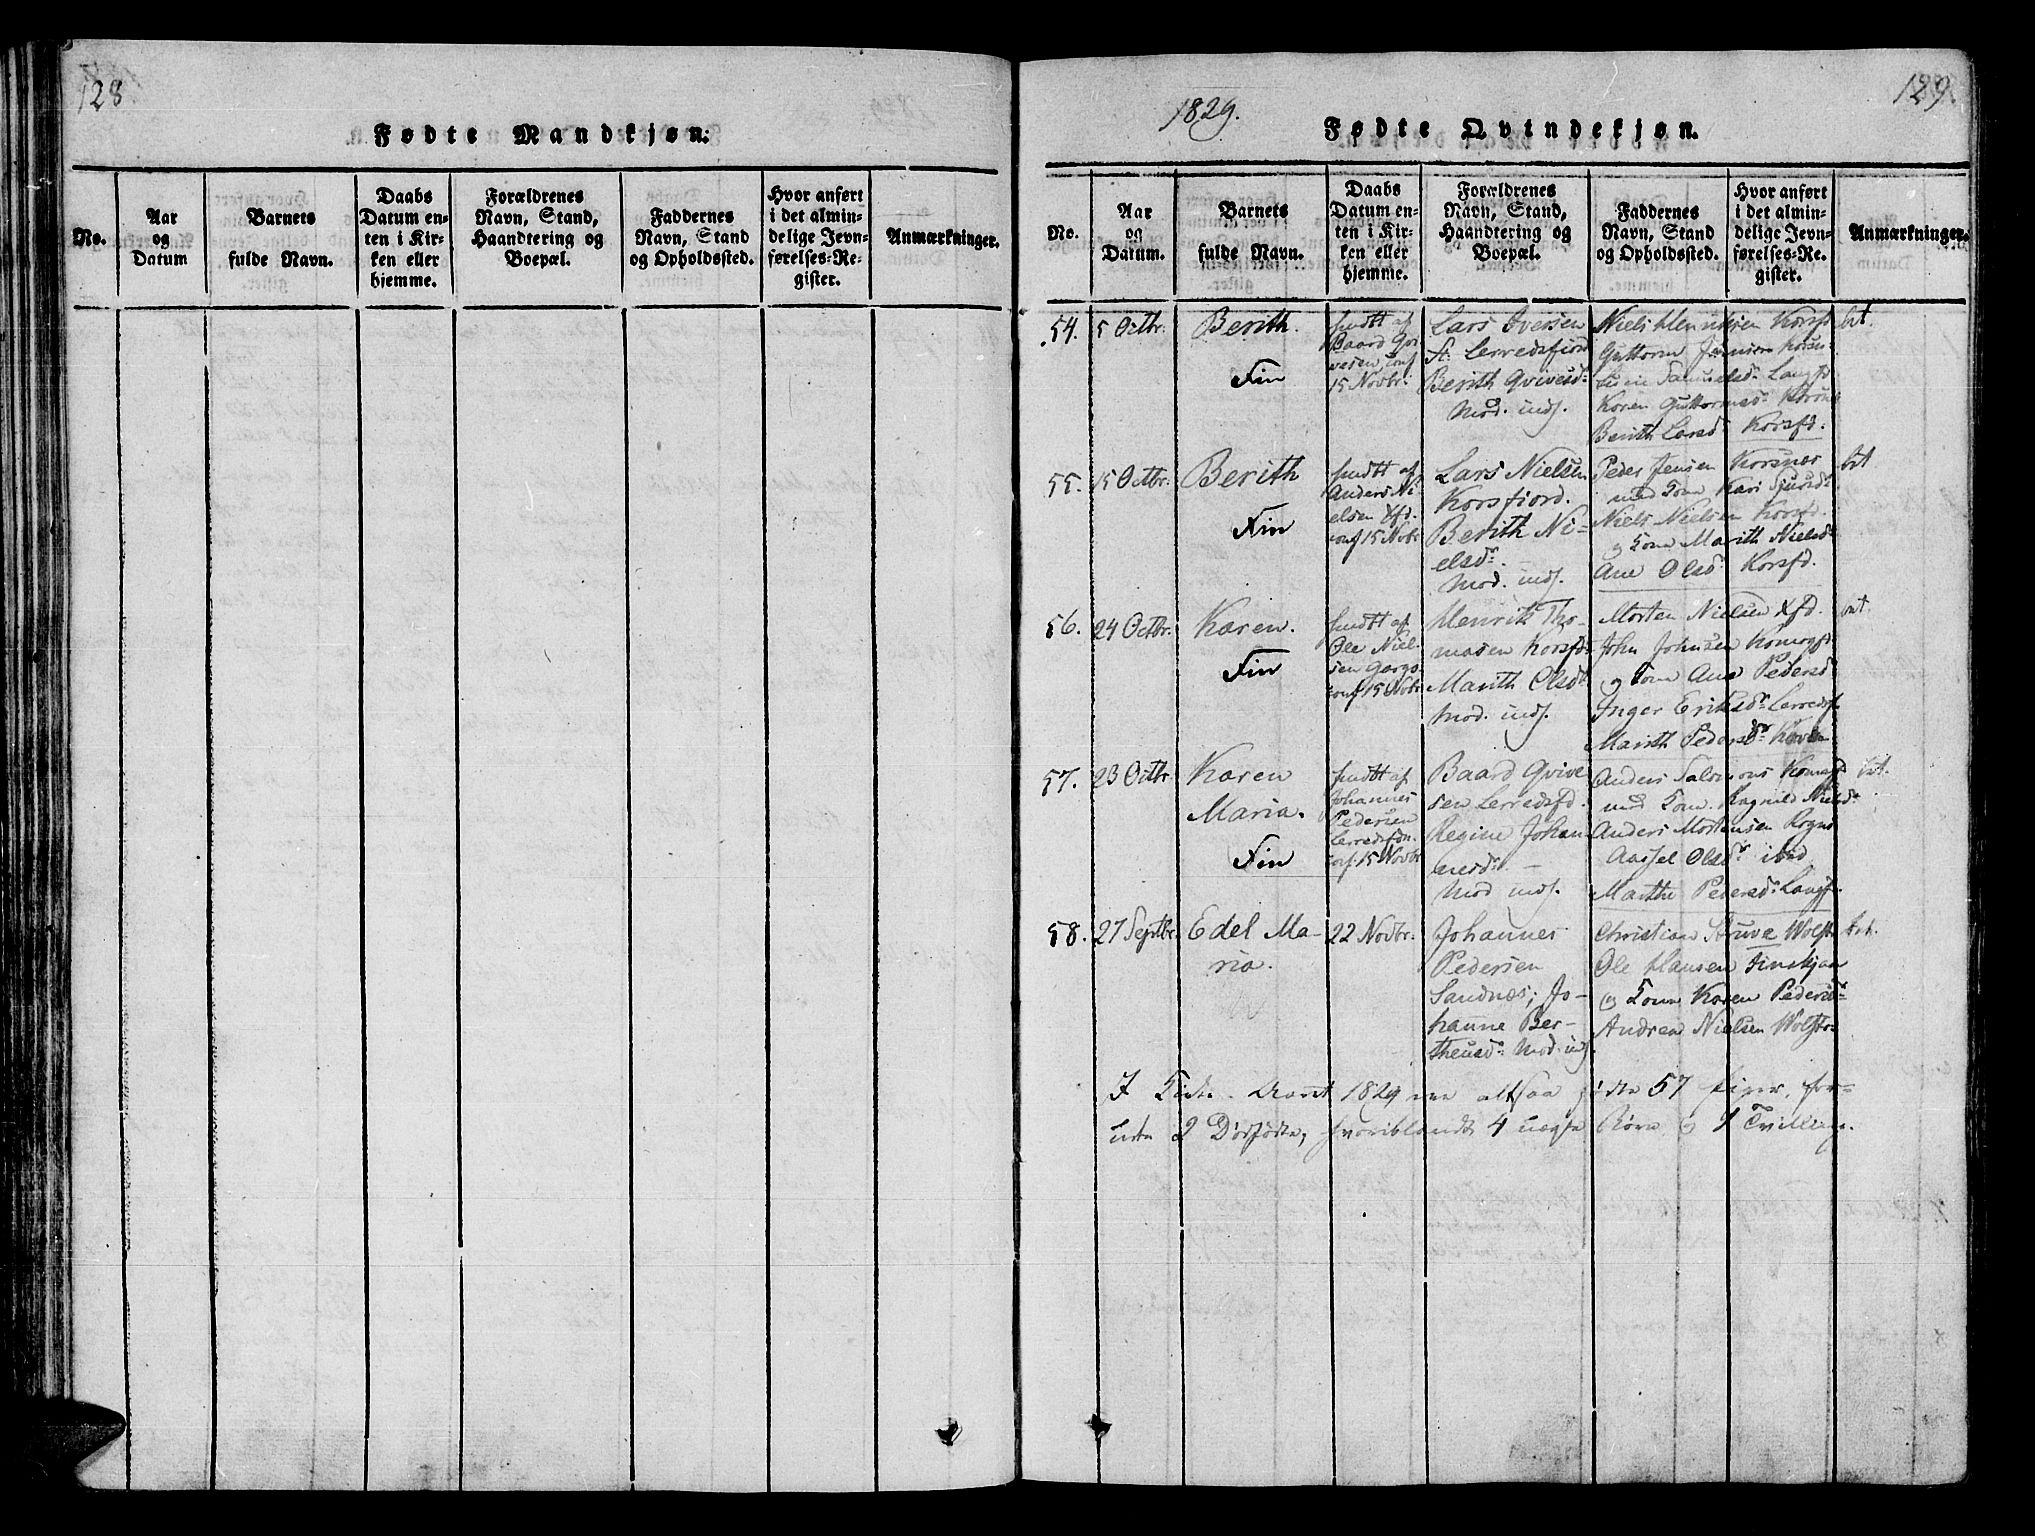 128
Fødte Mandkjøn.
No.
Aar
og
Datum
Barnets
fulde Navn.
Daabs
Datum en-
ten i Kir-
ken eller
hjemme.
Forældrenes
Navn, Stand,
Haandtering og
Boepæl.
Faddernes
Navn, Stand
og Opholdssted.
Hvor anført
i det almin-
delige Jevn-
førelses-Re-
gister.
Anmærkninger.
129.
1829.
Fødte Qvindekjøn.
No.
Aar
og
Datum.
Barnets
fulde Navn.
Daabs
Datum en-
ten i Kir-
ken eller
hjemme.
Forældrenes
Navn, Stand,
Haandtering og
Boepæl.
Faddernes
Navn, Stand
og Opholdssted.
Hvor anført
i det almin-
delige Jevn-
førelses-Re-
gister.
Anmærkninger.
54.
5 Octbr.
Berith.
Fin
af
Baard Gvi-
vesen conf
15 Novbr.
Lars Iversen
Lerredsfiord
Berith Gvivesdr
Mod. inds.
Niels Henriksen Korsfd
Guttorm Jensen
Samuelsdr Langf
Karen Guttormsdr
Berith Larsdr Korsfd.
55.
15 Octbr.
Berith
Fin
af
Anders Ni-
elsen Kfd.
conf 15 Nvbr
Lars Nielsen
Korsfiord.
Berith Ni-
elsdr.
Mod. inds.
Peder Jensen Korsnæs
med Kone Kari
Niels Nielsen Korsfd.
og Kone Marith Nielsdr
Ane Olsdr Korsfd.
56.
24 Octbr.
Karen.
Fin
af
Ole Niel-
sen Gargo
conf 15 Novbr
Henrik Tho-
masen Korsfd
Marith Olsdr
Mod. inds.
Morten Nielsen Kfd.
John Johnsen
og Kone Ane Pedersdr
Inger Eriksdr Lerredsf
Marith Pedersdr
57.
23 Octbr.
Karen
Maria.
Fin
af
Johannes
Pedersen
Lerredsfdn.
conf. 15 Novbr
Baard Gvive
sen Lerredsfd.
Regine Johan
nesdr. –
Mod inds.
Anders
med Kone. Nielsdr
Anders Mortensen
Olsdr ibid
Marthe Pedersdr Langf.
58.
27 Septbr.
Edel Ma-
ria.
22 Novbr.
Johannes
Pedersen
Sandnæs; Jo-
hanne Ber-
theusdr Mod. inds.
Christian Struve
Ole Hansen
og Kone Karen Pedersdr
Andreas Nielsen
I Aaret 1829 altsaa fødte 57 Piger, for-
uden 2 Dødfødte, hvoriblandt 4 uægte Børn og 1 Tvilling.